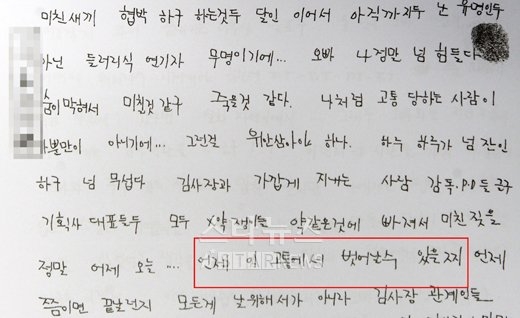 미친새끼 협박 하구 하는것두 달인 이어서 아직까지두 난 유명인두
아닌 들러리식 연기자 무명이기에... 오빠 나 정만 넘 힘들다
숨이막혀서 미친것 같구 죽을것 같다. 나처럼 고통 당하는 사람이
나뿐만이 아니기에... 그런걸 위안삼아야 하나. 하루 하루가 넘 잔인
하구 넘 무섭다 김사장과 가깝게 지내는 사람 감독.P.D들 근구
기획사 대표들두 모두 X약쟁이들 약같은것에 빠져서 미친짓을
정말 어제 오늘... 언제 이 고통에서 벗어날수 있을지 언제
쯤이면 끝날런지 모든게 날위해서가 아니라 김사장 관계인들
스타뉴스
STARNEWS